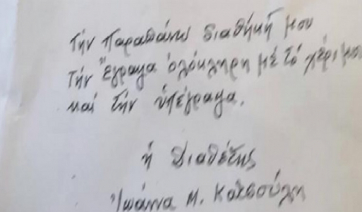 τήν Παραπάνω διαθήκη μου
τήν Ἔγραψα ὁλόκληρη μέ τό χέρι μου
καί τήν ὑπέγραψα.
ἡ Διαθέτης
Ἰωάννα Μ. Κατσούλη